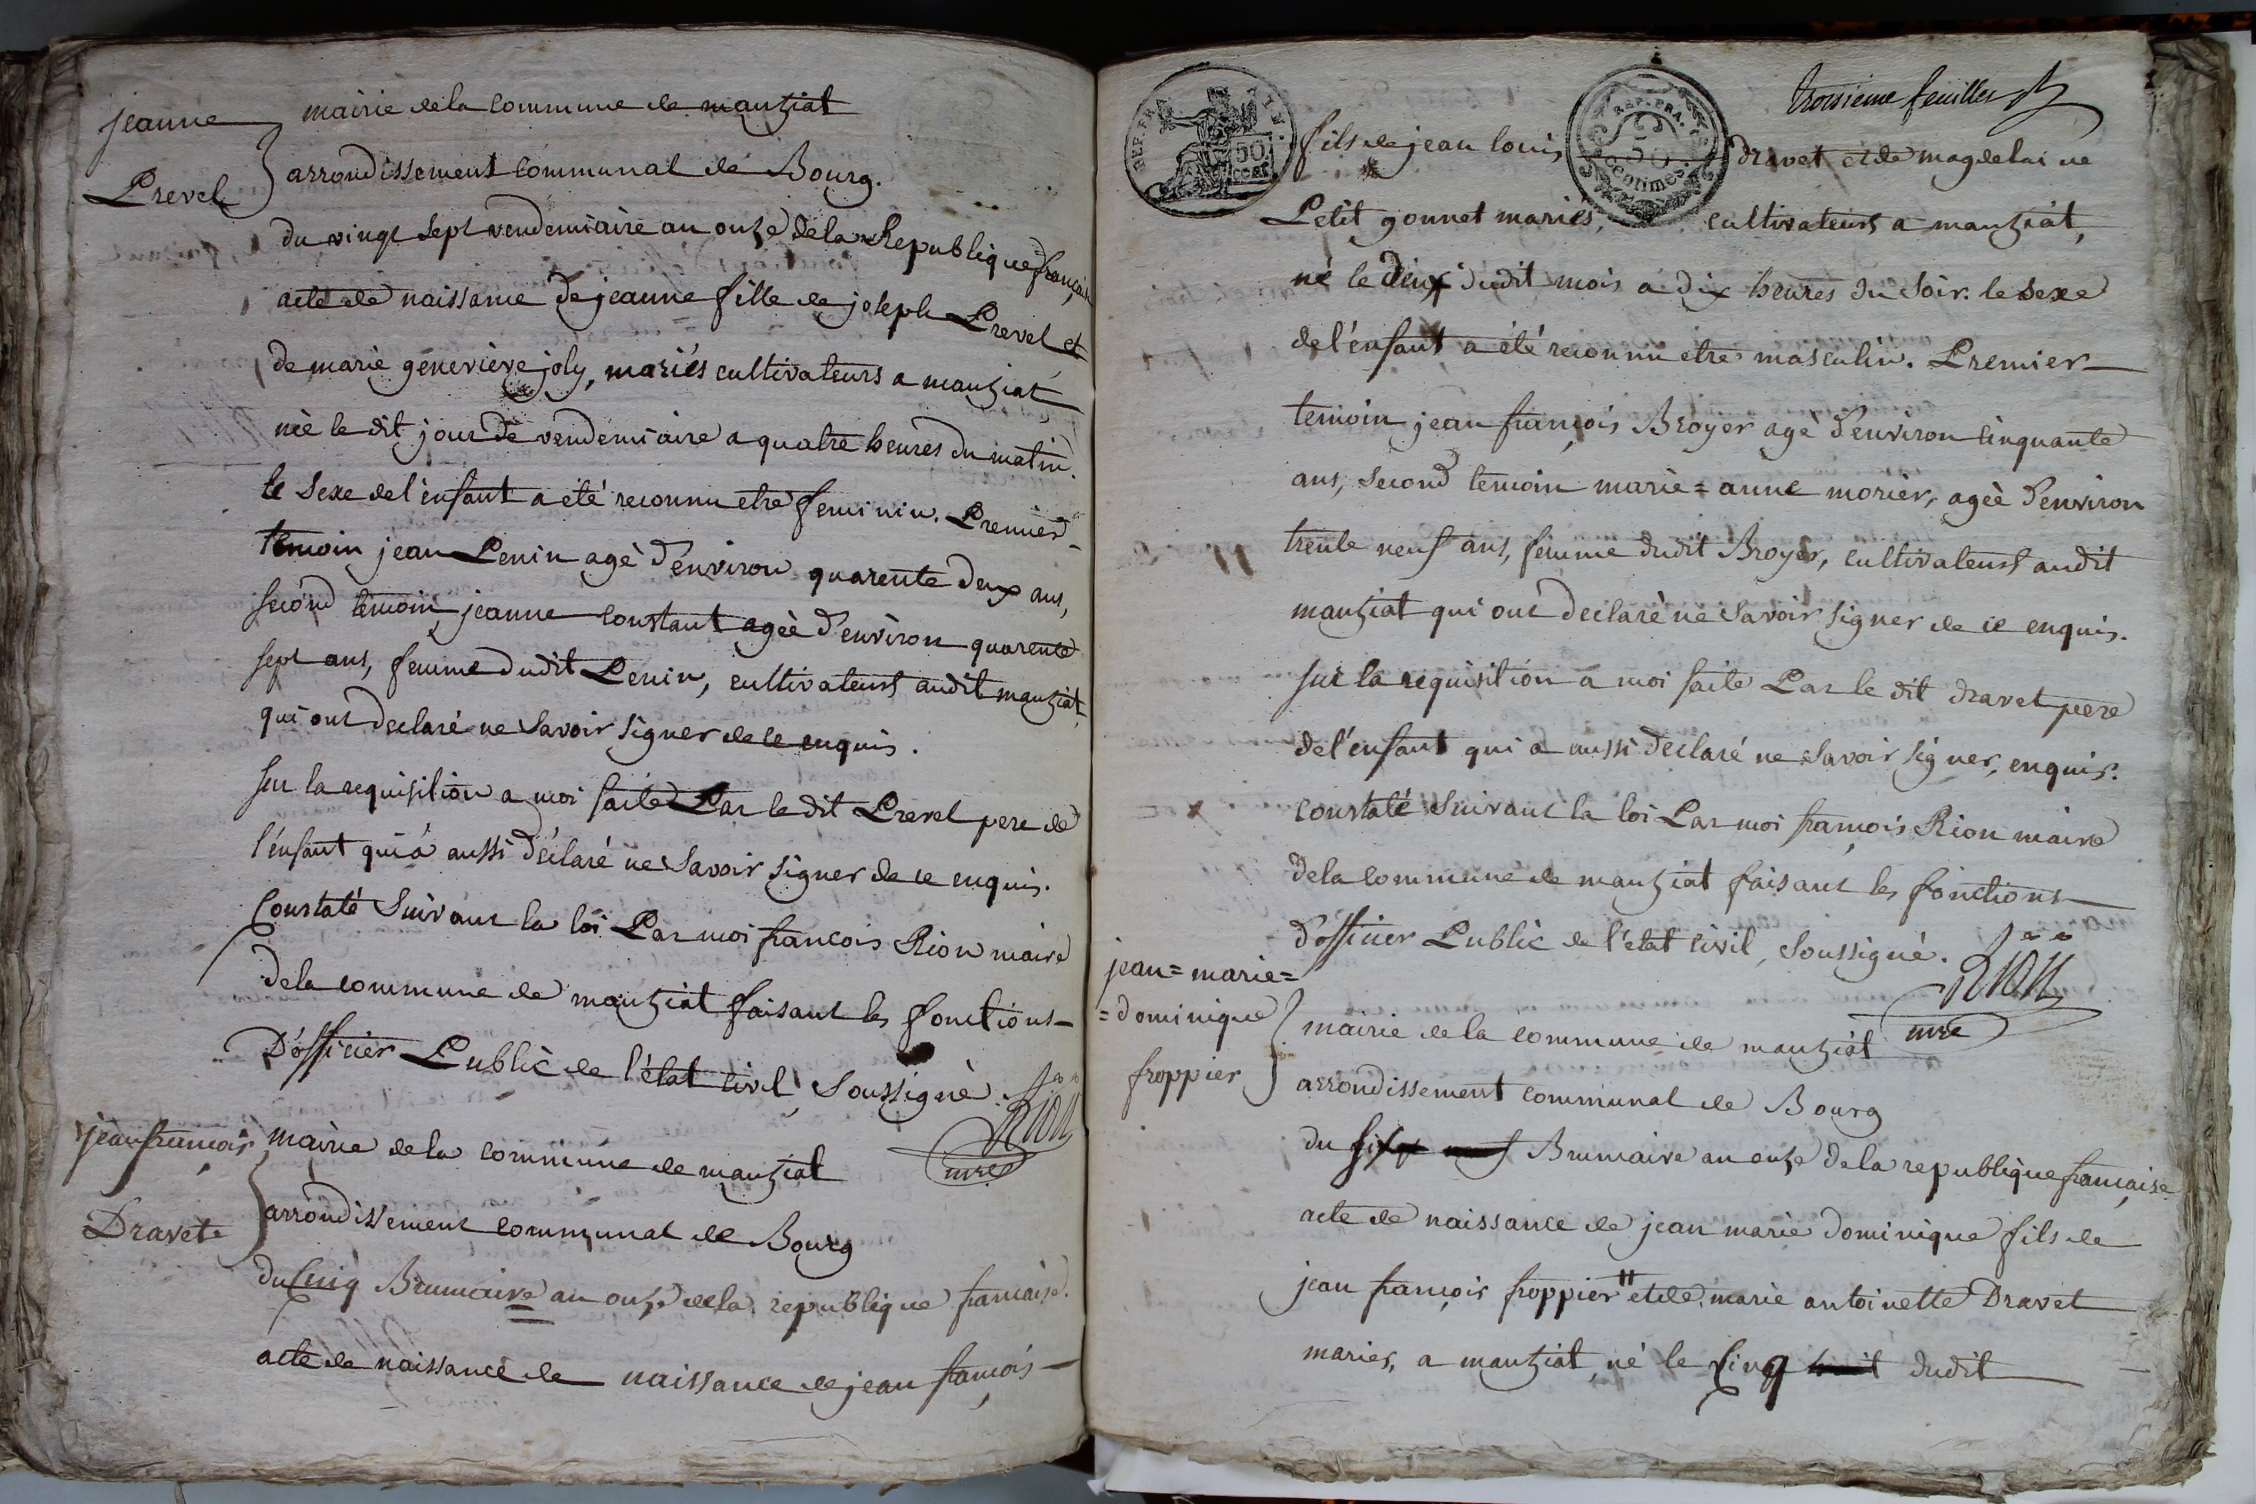 jeanne
Prevel
mairie de la commune de manziat
arrondissement communal de Bourg.
du vingt sept vendemiaire an onze de la Republique françai
acte de naissance de jeanne fille de joseph Prevel et
de marie geneviève joly, mariés cultivateurs a manziat
née le dit jour de vendemiaire a quatre heures du matin.
le sexe de l'enfant a été reconnu etre feminin. Premier
temoin jean Penin agé d'environ quarente deux ans,
second temoin, jeanne constant agée d'environ quarente
sept ans, femme dudit Penin, cultivateurs audit manziat,
qui ont declaré ne savoir signer de ce enquis.
sur la requisition a moi faite Par le dit Prevel pere de
l'enfant qui a aussi déclaré ne savoir signer de ce enquis.
Constaté suivant la loi Par moi francois Rion maire
de la commune de manziat faisant les fonctions
D'officier Public de l'état civil, soussigné.
Rion
mre
jean françois
Dravet
mairie de la commune de manziat
arrondissement communal de Bourg
du Cinq Brumaire an onze de la republique francaise.
acte de naissance de naissance de jean françois
troisieme feuillet
REP. FRA.
50
CENT
REP. FRA.
50
centimes
fils de jean louis dravet et de magdelaine
Petit gonnet mariés, cultivateurs a manziat,
né le deux dudit mois a dix heures du soir. le sexe
de l'énfant a été reconnu etre masculin. Premier
temoin jean françois Broyer agé d'environ cinquante
ans, second temoin marie=anne morier, agée d'environ
trente neuf ans, femme dudit Broyer, cultivateurs audit
manziat qui ont declaré ne savoir signer de ce enquis.
sur la requisition a moi faite Par le dit dravet pere
de l'énfant qui a aussi declaré ne savoir signer, enquis.
constaté suivant la loi Par moi françois Rion maire
de la commune de manziat faisant les fonctions
d'officier Public de l'état civil, soussigné.
Rion
mre
jean=marie=
=dominique
froppier
mairie de la commune de manziat
arrondissement communal de Bourg
du six neuf Brumaire an onze de la republique française
acte de naissance de jean marie dominique fils de
jean françois froppier et de marie antoinette Dravet
mariés, a manziat, né le cinq huit dudit